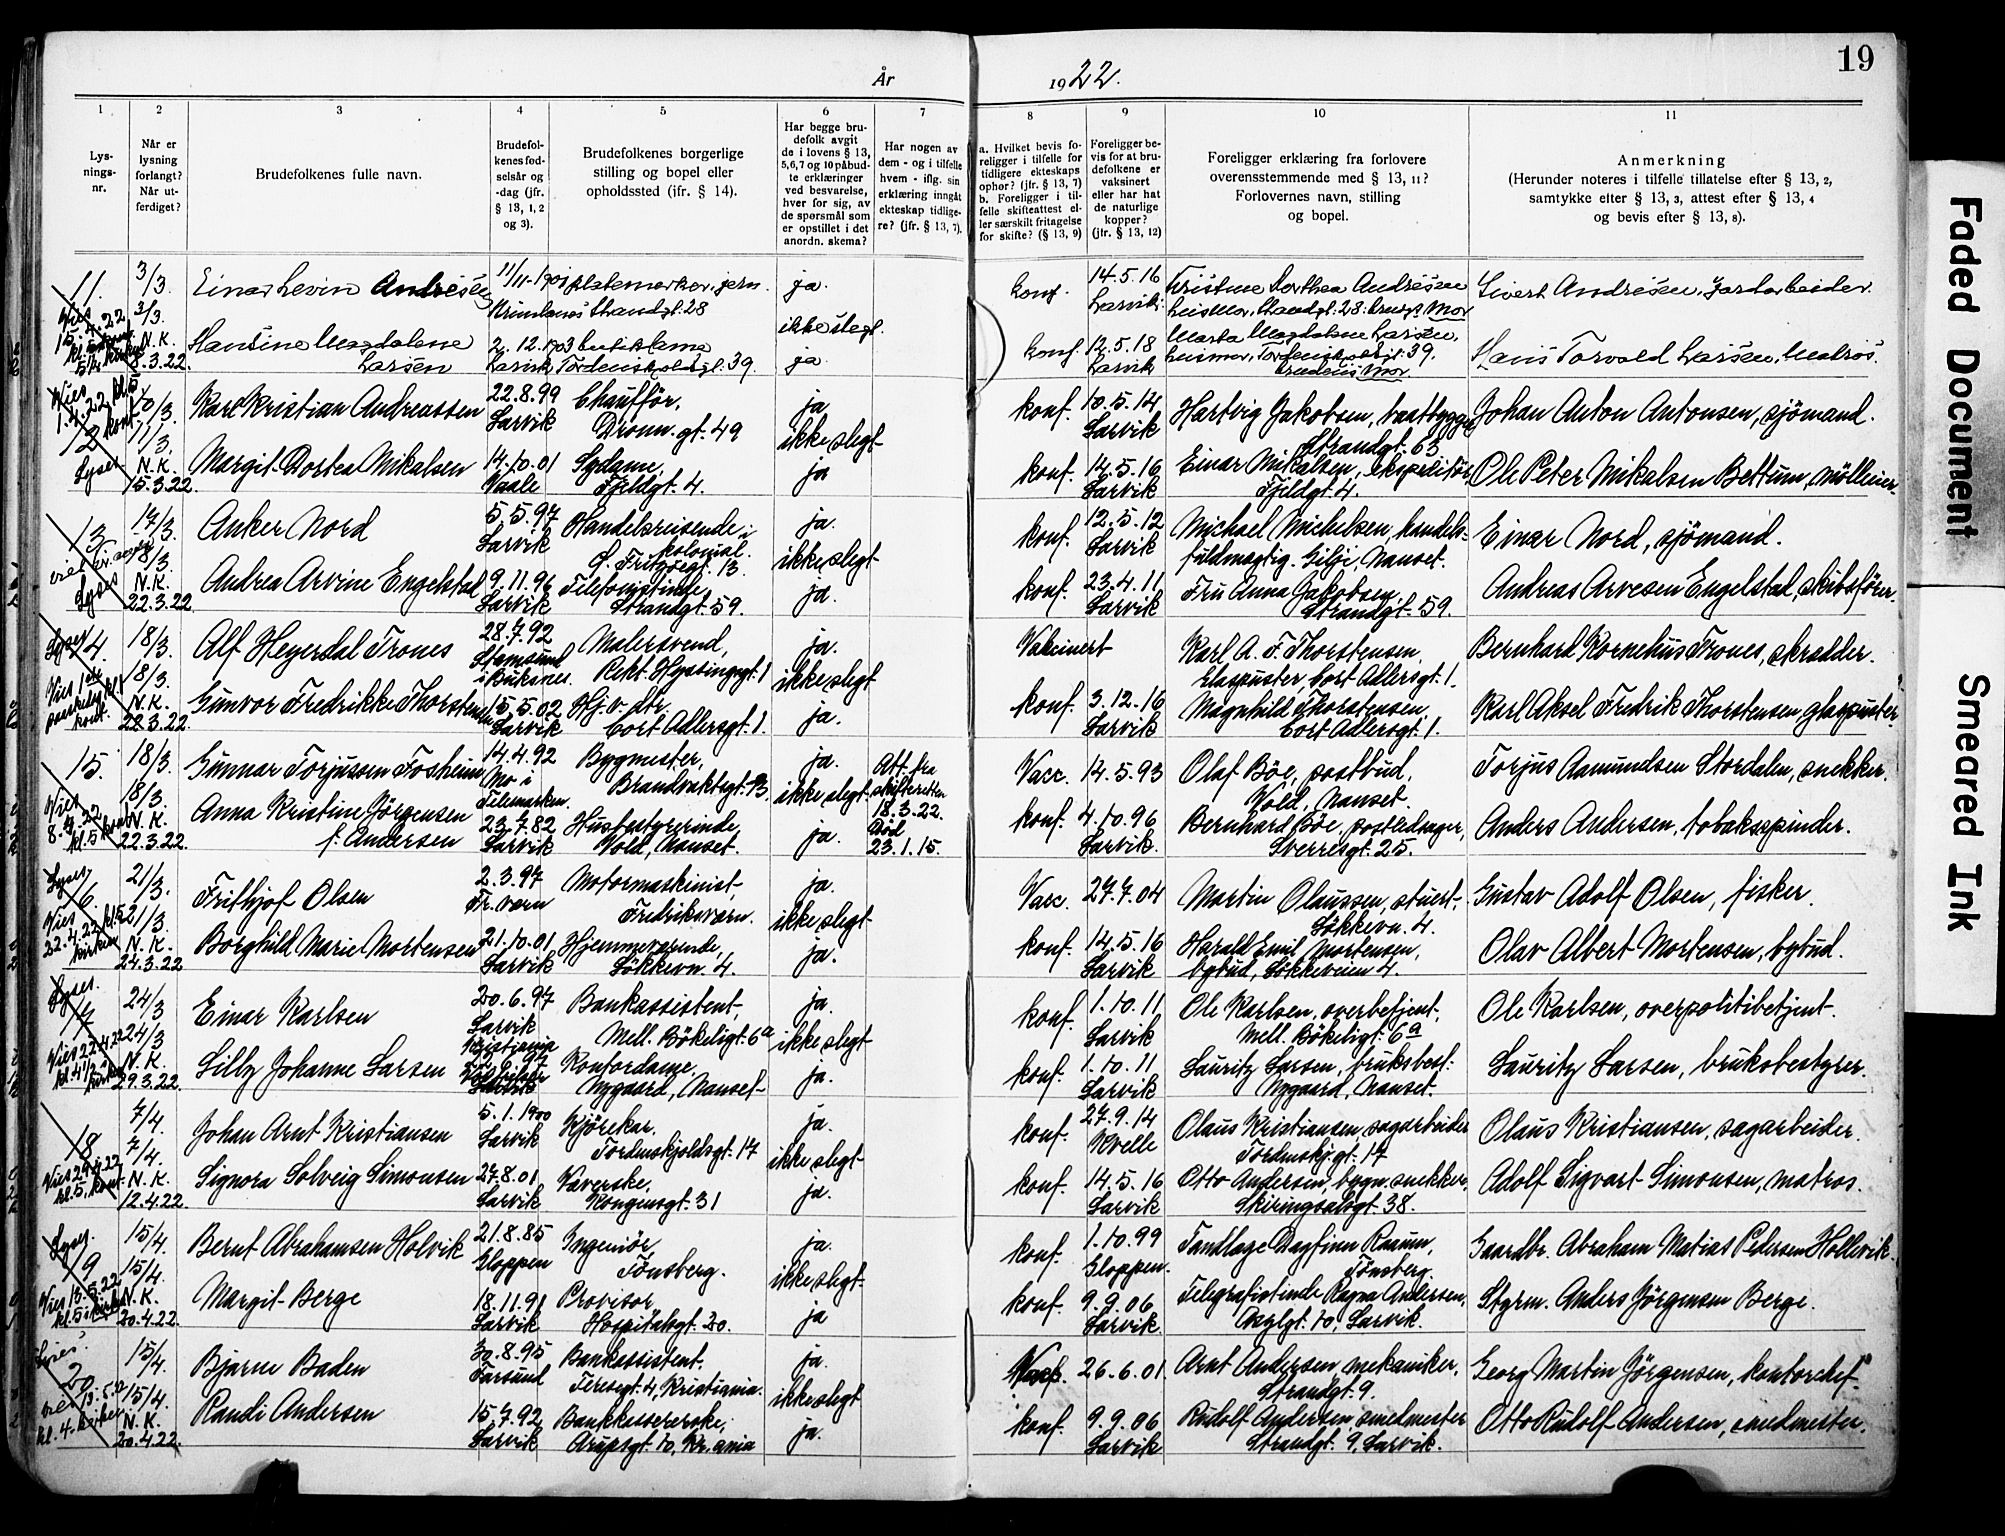 19
År
1922.
1
2
3
4
5
6
7
8
9
10
11
Lys-
nings-
nr.
Når er
lysning
forlangt?
Når ut-
ferdiget?
Brudefolkenes fulle navn.
Brudefol-
kenes fød-
selsår og
-dag (jfr.
§ 13, 1, 2
og 3).
Brudefolkenes borgerlige
stilling og bopel eller
opholdssted (jfr. § 14).
Har begge bru-
defolk avgit
de i lovens § 13,
5,6,7 og 10 påbud-
te erklæringer
ved besvarelse,
hver for sig, av
de spørsmål som
er opstillet i det
anordn. skema?
Har nogen av
dem - og i tilfelle
hvem - iflg. sin
erklæring inngåt
ekteskap tidlige-
re? (jfr. § 13, 7).
a. Hvilket bevis fo-
religger i tilfelle for
tidligere ekteskaps
ophør? (jfr. § 13, 7)
b. Foreligger i til-
felle skifteattest el-
ler særskilt fritagelse
for skifte? (§ 13, 9)
Foreligger be-
vis for at bru-
defolkene er
vaksinert
eller har hat
de naturlige
kopper?
(jfr. § 13, 12)
Foreligger erklæring fra forlovere
overensstemmende med § 13, 11?
Forlovernes navn, stilling
og bopel.
Anmerkning
(Herunder noteres i tilfelle tillatelse efter § 13, 2,
samtykke efter § 13, 3, attest efter § 13, 4
og bevis efter § 13, 8).
11. 3/3. Einar Levin Andresen 11/11-1901 ja. konf. 14.5.16 Larvik Andresen Sivert Andresen,
3/3. Strandgt. 28 ikke slegt. Strandgt. 28. Mor
N.K. Hansine Magdalene 2.12.1903 ja konf. 12.5.18 Marta Magdalene Larsen, Hans Torvald Larsen, Matros.
Larsen Larvik, Tordenskjoldsgt. 39. Larvik Tordenskjoldsgt. 39. Mor.
12 10/3. Karl Kristian Andreassen 22.8.99 Chaufför, ja konf. 10.5.14 Hartvig Jakobsen, baatbygger Johan Anton Antonsen, sjömand.
11/3. Larvik Dronn.gt. 49 ikke slegt Larvik Strandgt. 63
Lyser N.K. Margit Dortea Mikalsen 14.10.01 Sydame, ja konf. 14.5.16 Einar Mikalsen, ekspeditör Ole Peter Mikalsen Bettum, mölleier.
15.3.22. Vaale Fjeldgt. 4. Larvik Fjeldgt. 4.
13 17/3. Anker Nord 5.5.97 Handelsreisende i ja. konf. 12.5.12 Michael Michelsen, handels- Einar Nord, sjömand.
18/3. Larvik kolonial. Ö. Fritzøegt. 13. ikke slegt Larvik fuldmægtig. Gilje, Nanset.
Lyses N.K. Andrea Arvine Engelstad 9.11.96 Telefonistinde, ja. konf. 23.4.11 Fru Anna Jakobsen, Andreas Arvesen Engelstad, skibsförer.
22.3.22 Larvik Strandgt. 59. Larvik Strandgt. 59.
14. 18/3. Alf Heyerdal Trones 28.7.92 Malersvend, ja. Vakcinert Karl A. F. Thorstensen, Bernhard Kornelius Trones, skrædder.
18/3. Stamsund i Buksnes. Rekt. Hysingsgt. 1 ikke slegt Glaspuster, Cort Adlersgt. 1.
N.K. Gunvor Fredrikke Thorstensen 15.5.02 Hj.v. dtr. ja. konf. 3.12.16 Magnhild Thorstensen Karl Aksel Fredrik Thorstensen, glaspuster.
22.3.22. Larvik Cort Adlersgt. 1. Larvik Cort Adlersgt. 1.
15. 18/3. Gunnar Torjussen Fosheim 14.4.92 Bygmester, ja. Att. fra Vacc. 14.5.93 Olaf Böe, postbud, Torjus Aamundsen Stordalen, snekker.
18/3. Mo i Telemarken. Brandvaktsgt. 13. ikke slegt skifteretten 18.3.22. Vold, Nanset.
Vies N.K. Anna Kristine Jörgensen 23.7.82 Husbestyrerinde, ja. Död konf. 4.10.96 Bernhard Böe, postledsager, Anders Andersen, tobakspinder.
22.3.22. f. Andersen Larvik Vold, Nanset. 23.1.15. Larvik. Sverresgt. 25.
Lyses 16. 21/3. Frithjof Olsen 2.3.97 Motormaskinist, ja. Vacc. 27.7.04 Martin Olaussen, stuert, Gustav Adolf Olsen, fisker.
21/3. Fr.værn Fredriksværn. ikke slegt Lökkevn. 4.
22.4.22 kl. 5 kirken N.K. Borghild Marie Mortensen 21.10.01 Hjemmeværende, ja. konf. 14.5.16 Harald Emil Mortensen, Olav Albert Mortensen, bybud.
24.3.22 Larvik Lökkevn. 4. Larvik bybud, Lökkeveien 4.
Lyses. 17 24/3 Einar Karlsen 20.6.97 Bankassistent, ja. konf. 1.10.11 Ole Karlsen, overbetjent, Ole Karlsen, overpolitibetjent.
24/3 Larvik Mell. Bökeligt. 6a ikke slegt Larvik Mell. Bökeligt. 6a
Vies 22.4.22 N.K. Lilly Johanne Larsen Kristiania Kontordame, ja. konf. 1.10.11 Lauritz Larsen, bruksbest. Lauritz Larsen, bruksbestyrer.
29.3.22. Nygaard, Nanset Larvik Nygaard, Nanset.
18 7/4. Johan Arnt Kristiansen 5.1.1900 Kjörekar. ja. konf. 27.9.14 Olaus Kristiansen, sagarbeider Olaus Kristiansen, sagarbeider.
7/4. Larvik Tordenskjoldsgt. 17 ikke slegt Kvelle Tordenskj.gt. 17
kl. 5, kont. N.K. Signora Solveig Simonsen 27.8.01 Væverske, ja. konf. 14.5.16 Otto Andersen, bygn.snekker, Adolf Sigvart Simonsen, matros.
12.4.22. Larvik Kongensgt. 31 Larvik Skiringsalsgt. 38.
Lyses. 19 15/4. Bernt Abrahamsen Holvik 21.8.85 Ingeniör, ja. konf. 1.10.99 Tandlæge Dagfinn Raaum, Gaardbr. Abraham Matias Pedersen Hollevik.
15/4. Gloppen Tönsberg. ikke slegt Gloppen. Tönsberg.
Vies 13.5.22 N.K. Margit Berge 18.11.91 Provisor ja konf. 9.9.06 Telegrafistinde Ragna Andersen, Styrm. Anders Jörgensen Berge.
20.4.22. Larvik Hospitalsgt. 20. Larvik. Asylgt. 10, Larvik.
Lyses. 20 15/4. Bjarne Baden 30.8.95 Bankassistent. ja. 26.6.01 Arnt Andersen mekaniker, Georg Martin Jörgensen, kontorchef.
15/4. Farsund Teresegt. 4, Kristiania. ikke slegt Strandgt. 9.
kl. 4. kirken N.K. Randi Andersen 15.7.92 Bankkassererske, ja. konf. 9.9.06 Rudolf Andersen smedmester Otto Rudolf Andersen, smedmester.
20.4.22. Larvik Arupsgt. 10, Kr.ania Larvik Strandgt. 9, Larvik.
Faded Document
Smeared Ink